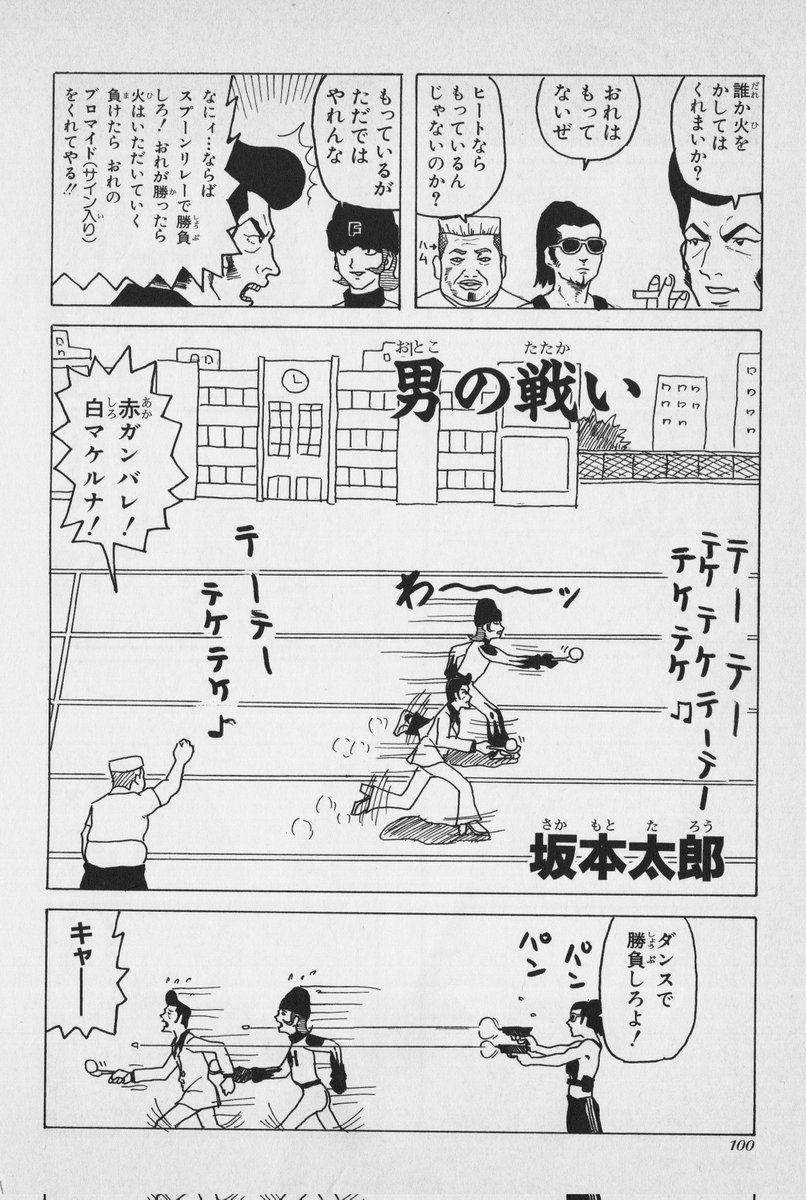 誰か火を
かしては
くれまいか?
だれ
ひ
おれは
もって
ないぜ
ヒートなら
もっているん
じゃないのか?
ハム
もっているが
ただでは
やれんな
F
なにィ…ならば
スプーンリレーで勝負
しろ! おれが勝ったら
火はいただいていく
負けたら おれの
ブロマイド(サイン入り)
をくれてやる!!
しょうぶ
か
ひ
ま
い
男の戦い
おとこ
たたか
赤ガンバレ!
白マケルナ!
あか
しろ
テーテー
テケテケテーテー
テケテケ♫
わ〜〜〜ッ
テーテー
テケテケ♪
坂本太郎
さか もと た ろう
ダンスで
勝負しろよ!
しょうぶ
パン
パン
キャー
100